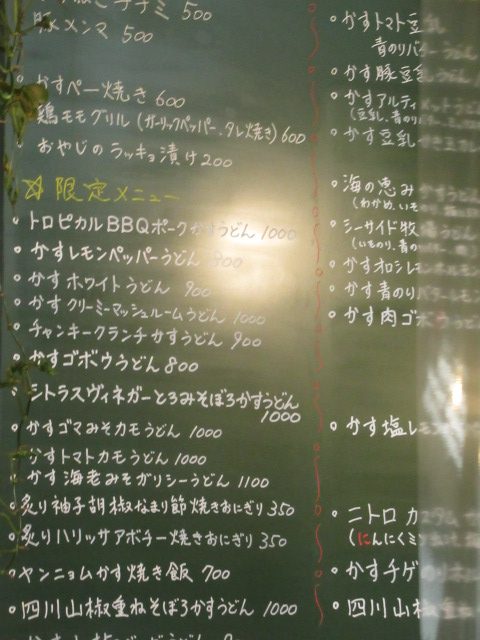 チヂミ 500
豚メンマ 500
かすペー焼き 600
鶏モモグリル (ガーリックペッパー、タレ焼き) 600
おやじのラッキョ漬け 200
☆限定メニュー
トロピカルBBQポークかすうどん 1000
かすレモンペッパーうどん 900
かすホワイトうどん 900
かすクリーミーマッシュルームうどん 1000
チャンキークランチかすうどん 900
かすゴボウうどん 800
シトラスヴィネガーとろみそぼろかすうどん
1000
かすゴマみそカモうどん 1000
かすトマトカモうどん 1000
かす海老みそガリシーうどん 1100
炙り柚子胡椒なまり節焼きおにぎり 350
炙りハリッサアボチー焼きおにぎり 350
ヤンニョムかす焼き飯 700
四川山椒重ねそぼろかすうどん 1000
かすトマト豆乳
青のりバターうどん
かす豚豆乳うどん
かすアルティメットうどん
(豆乳、青のり
かす豆乳
海の恵みかすうどん
(わかめ、いも
シーサイド牧場うどん
(いものり、青の
かすオロシレモン
かす青のりバターレモン
かす肉ゴボウうどん
かす塩レモン
ニトロカスタム
(にんにくミ
かすチゲ
四川山椒